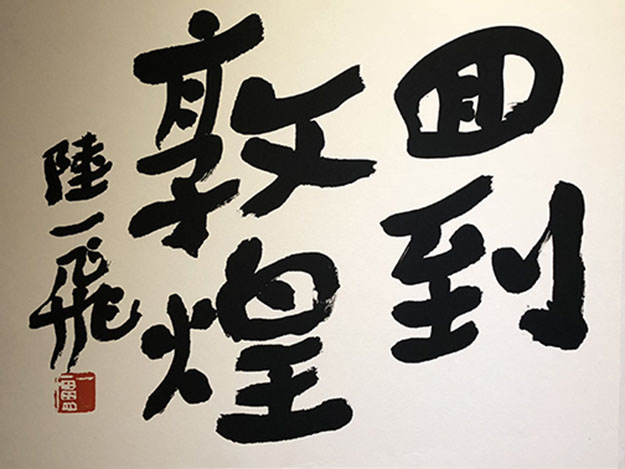 回到
敦煌
陸一飛